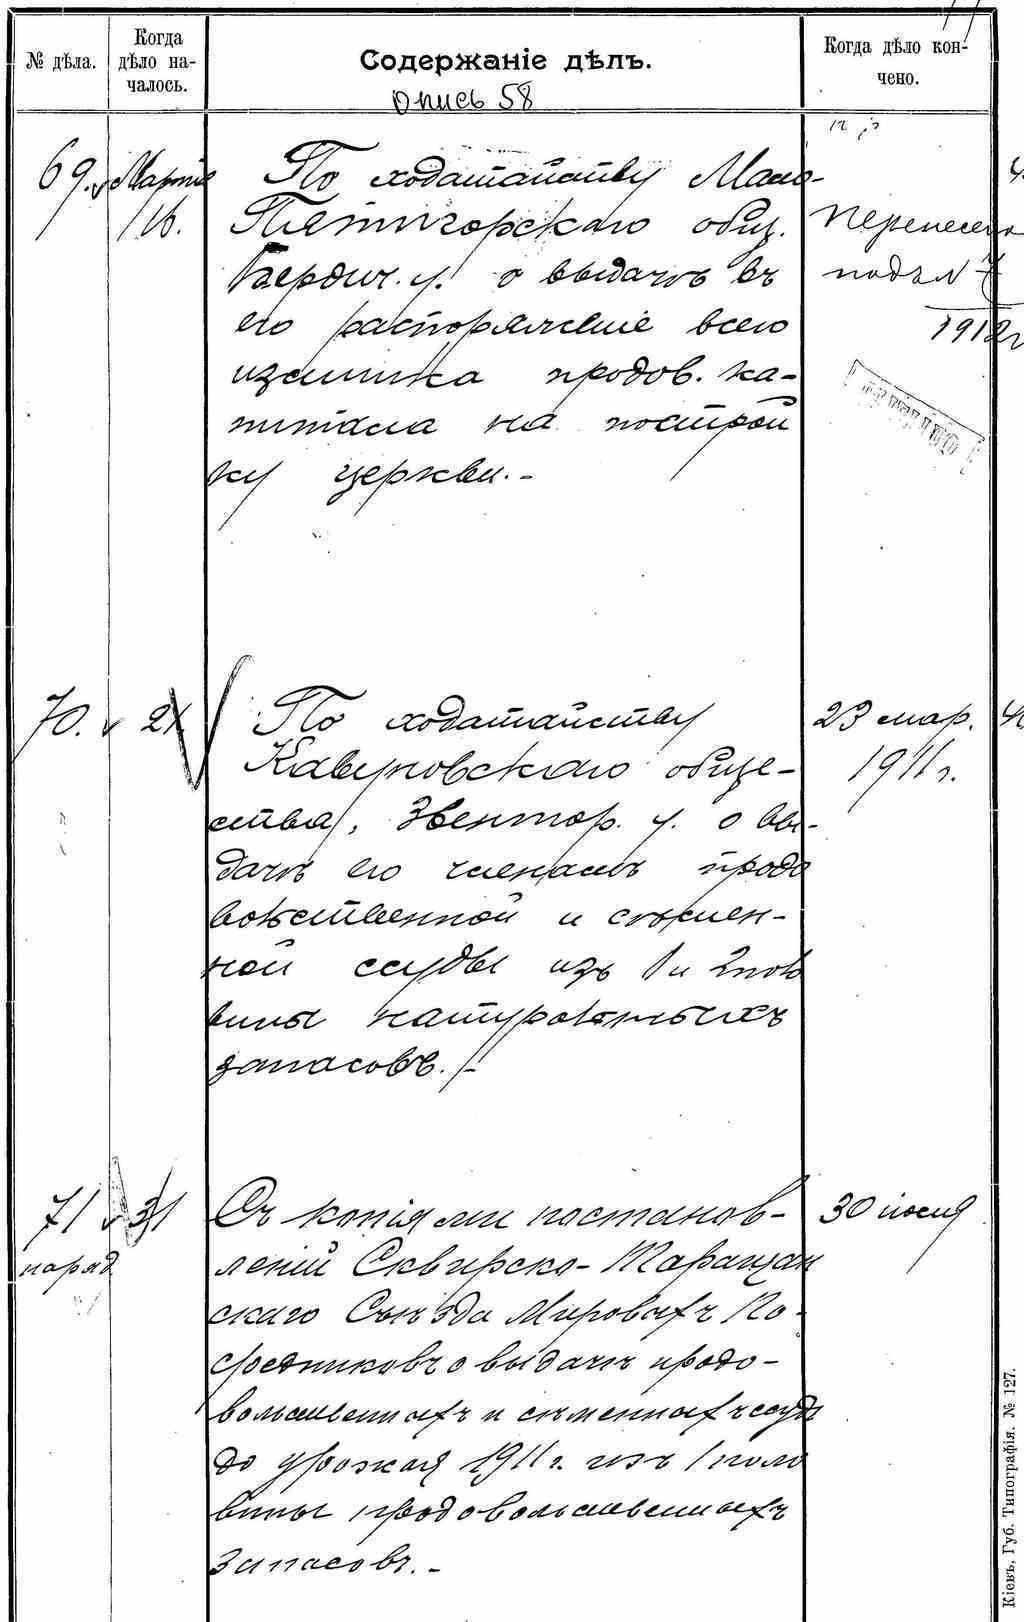 № дѣла.
Когда дѣло на-
чалось.
Содержаніе дѣлъ.
Когда дѣло кон-
чено.
Опись 58
69.
Марта
16.
По ходатайству Мало-
Пятигорскаго общ.
Бердич. у. о выдачѣ въ
его распоряженіе всего
излишка продов. ка-
питала на построй
ку церкви.-
Перенесено
подъ №
1912 г
70.
21
По ходатайству
Кавуновскаго обще-
ства, Звенигор. у. о вы-
дачѣ его членамъ продо
вольственной и сѣмен-
ной ссуды изъ 1 и 2 поло
вины натуральныхъ
запасовъ.-
23 мар.
1911 г.
71
наряд
31
Съ копіями постанов-
леній Сквирско-Таращан
скаго Съѣзда Мировыхъ По-
средниковъ о выдачѣ продо-
вольственныхъ и сѣменныхъ ссудъ
до урожая 1911 г. изъ 1 поло
вины продовольственныхъ
запасовъ.-
30 іюля
Кіевъ, Губ. Типографія. № 127.